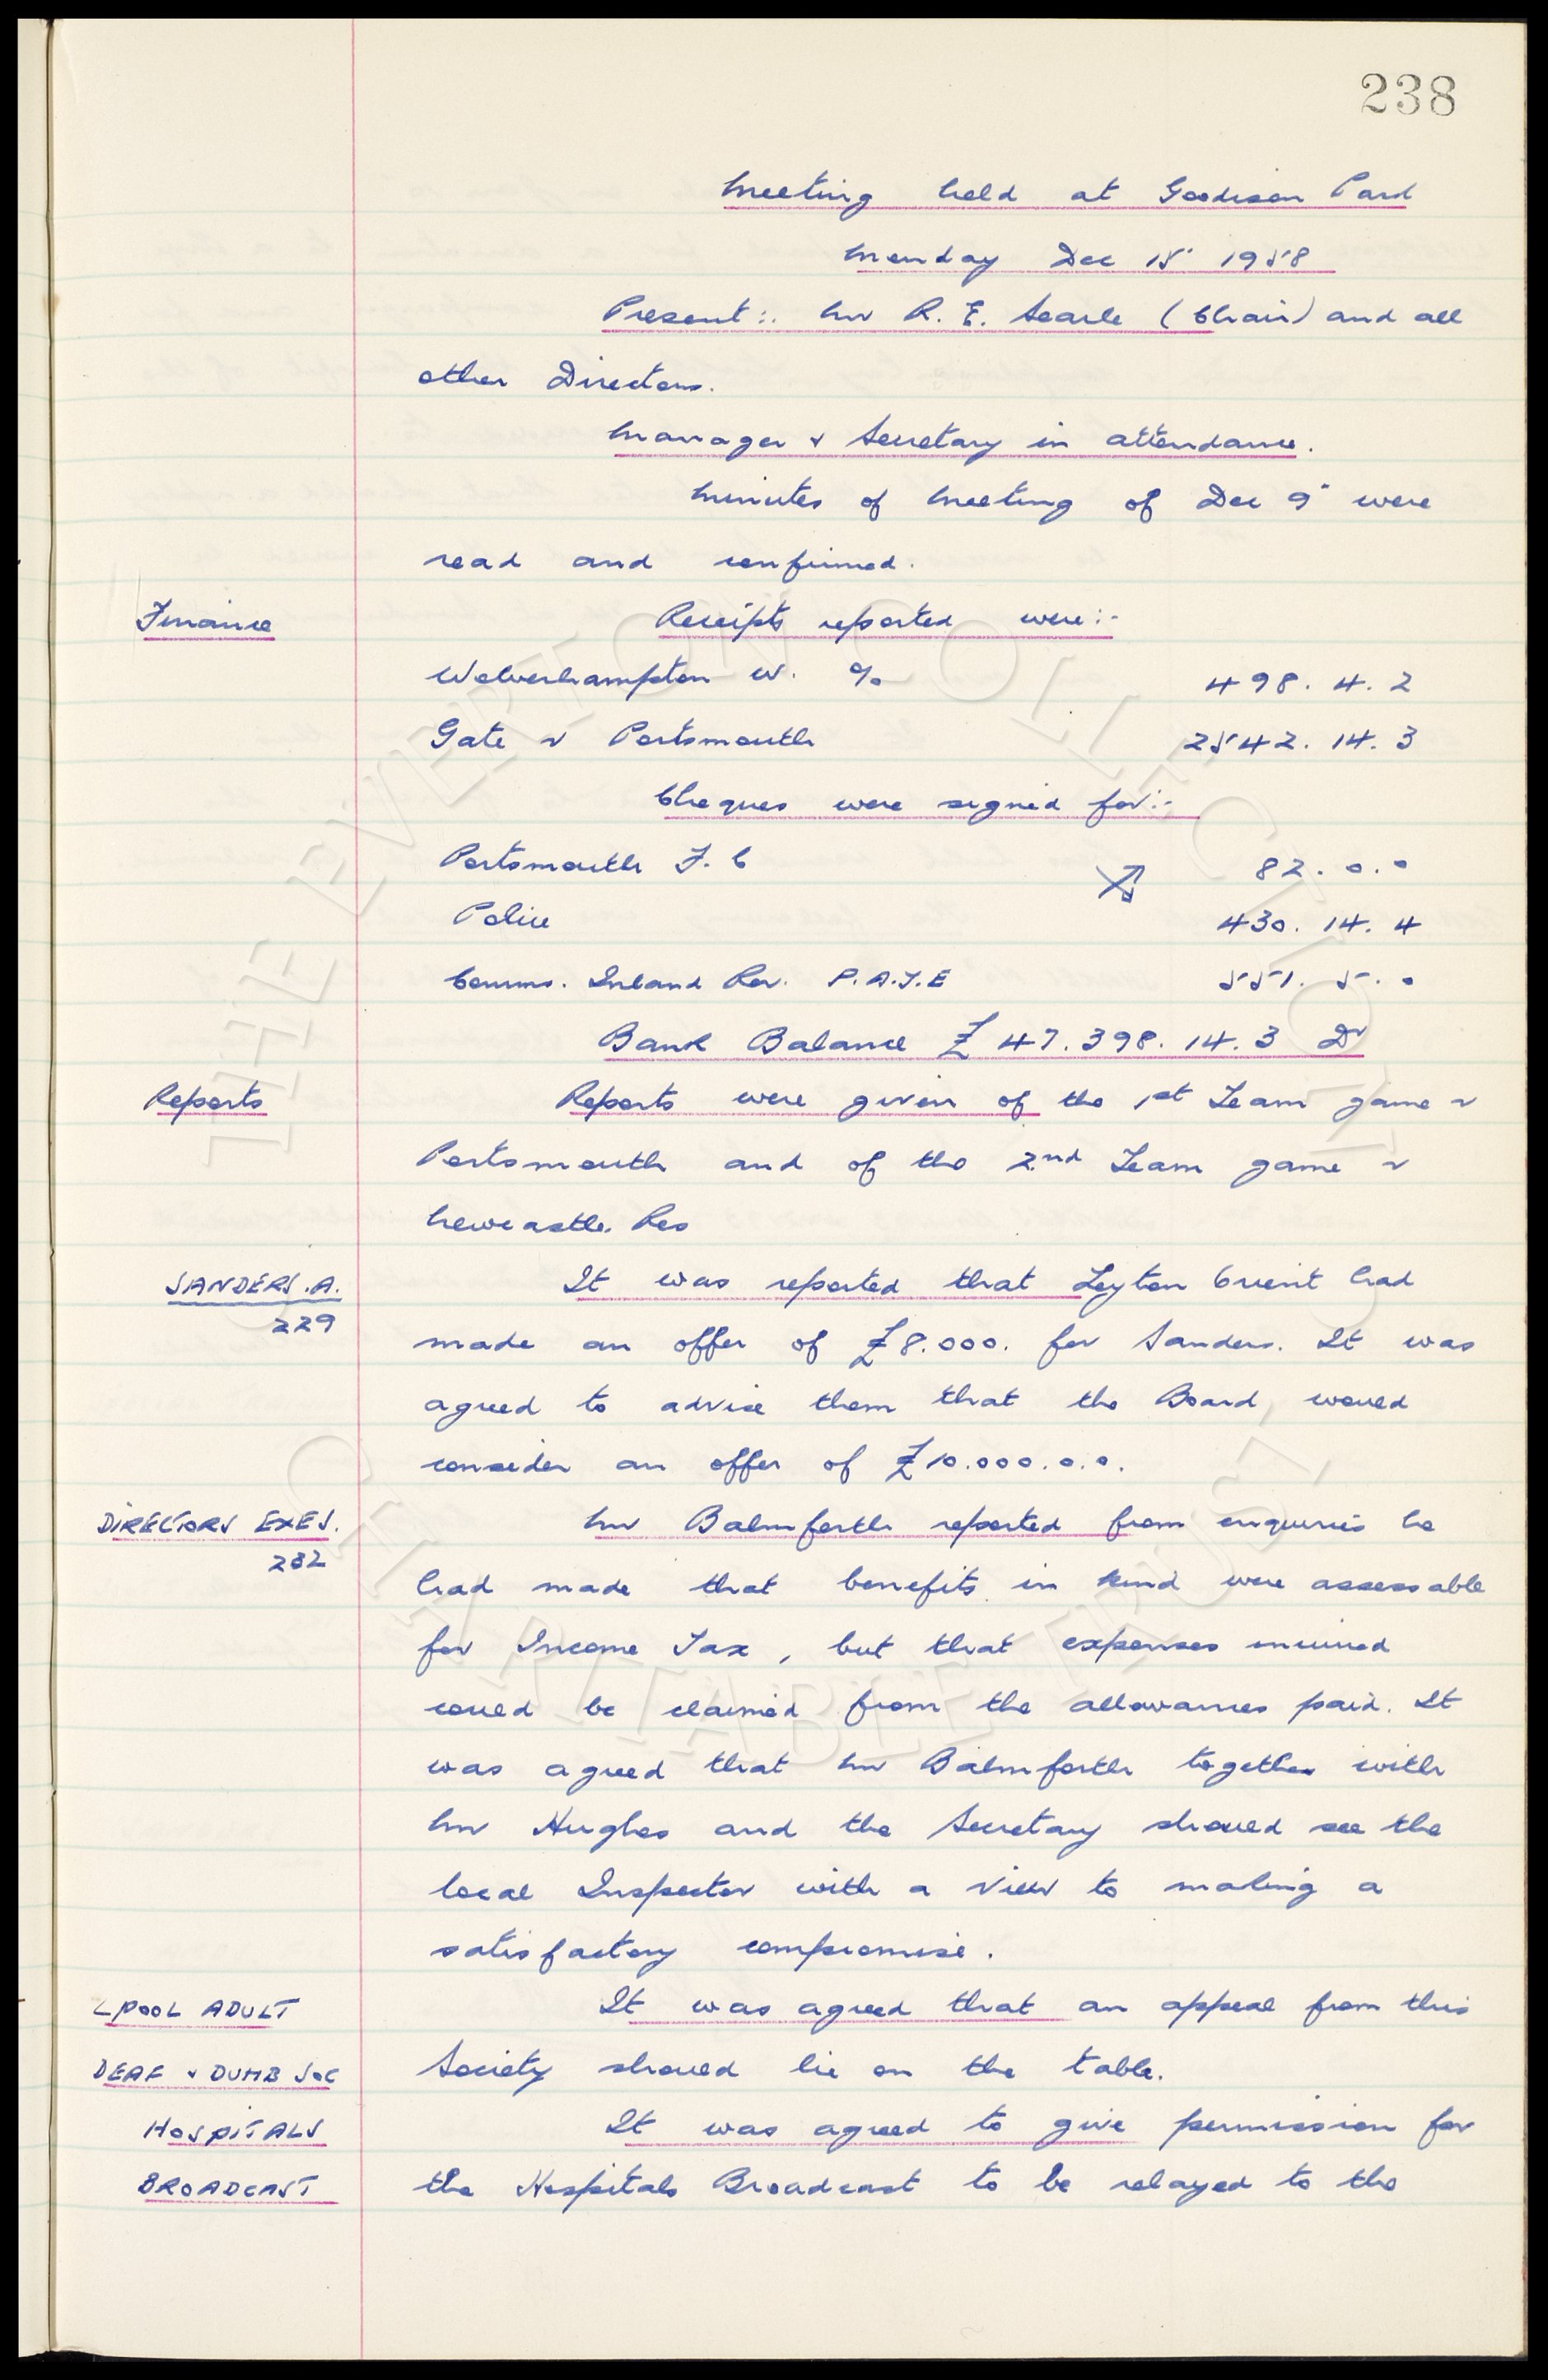 238
Meeting held at Goodison Park
Monday Dec 15" 1958
Present:. Mr R. E. Searle (Chair) and all
other Directors.
Manager & Secretary in attendance.
Minutes of Meeting of Dec 9" were
read and confirmed.
Finance Receipts reported were:-
Wolverhampton W. % 498. 4. 2
Gate v Portsmouth 2542. 14. 3
Cheques were signed for:-
Portsmouth F. C 82. 0. 0
Police 430. 14. 4
Comms. Inland Rev. P.A.Y.E 551. 5. 0
Bank Balance £47.398. 14. 3 Dr
Reports Reports were given of the 1st Team game v
Portsmouth and of the 2nd Team game v
Newcastle. Res
SANDERS.A. It was reported that Leyton Orient had
229
made an offer of £8.000. for Sanders. It was
agreed to advise them that the Board, would
consider an offer of £10.000.0.0.
DIRECTORS EXES. Mr Balmforth reported from enquiries he
232
had made that benefits in kind were assessable
for Income Tax, but that expenses incurred
could be claimed from the allowances paid. It
was agreed that Mr Balmforth together with
Mr Hughes and the Secretary should see the
local Inspector with a view to making a
satisfactory compromise.
LPOOL ADULT It was agreed that an appeal from this
DEAF & DUMB SOC Society should lie on the table.
HOSPITALS It was agreed to give permission for
BROADCAST the Hospitals Broadcast to be relayed to the
THE EVERTON COLLECTION
CHARITABLE TRUST